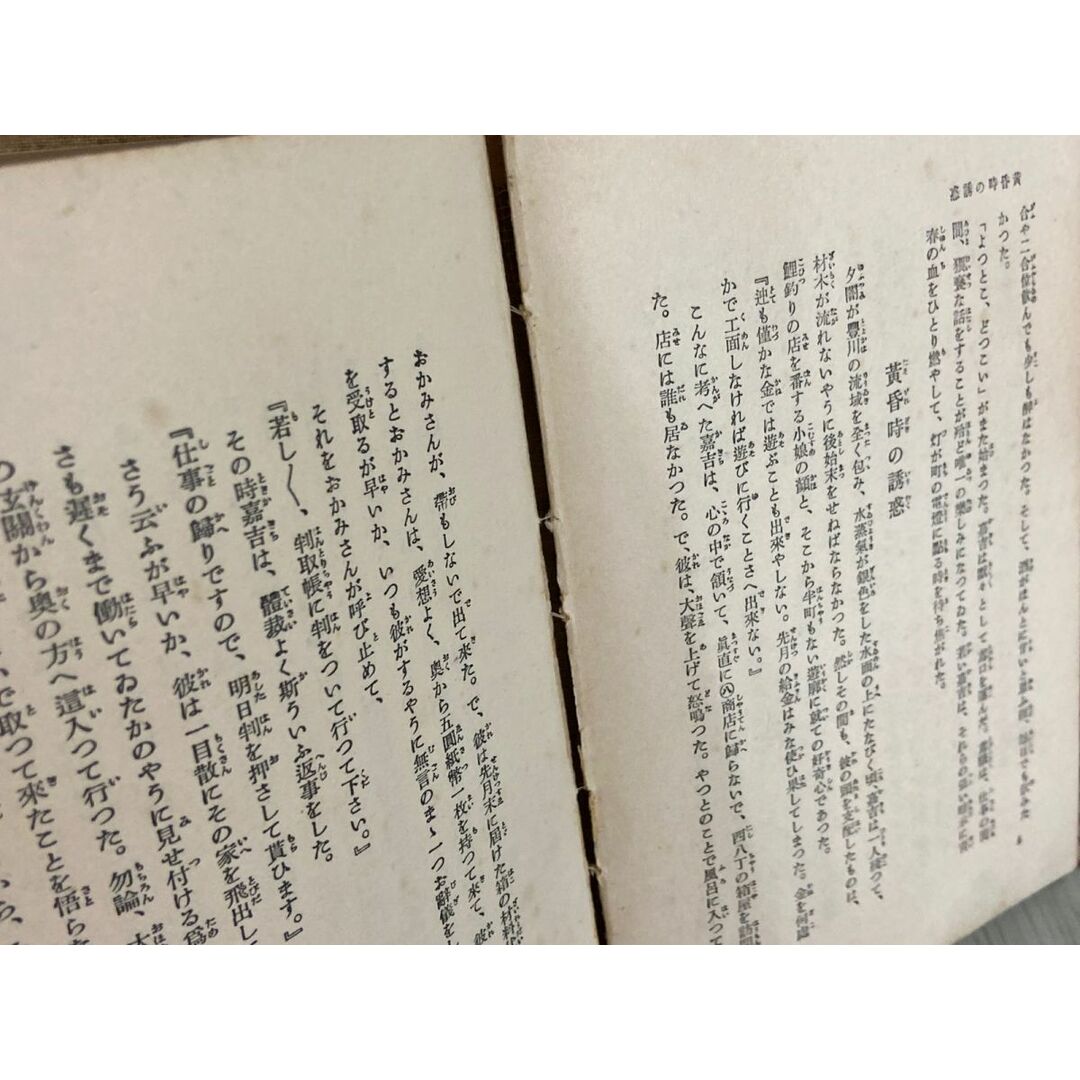 黄昏時の誘惑
合や二合位飲んでも少しも酔はなかつた。そして、
かつた。
「よつとこ、どつこい」がまた始まつた。嘉吉は
間、猥褻な話をすることが殆ど唯一の樂しみになつてゐた。若い嘉吉は、それらの
春の血をひとり燃やして、灯が町の電燈に點る時を待ち焦がれた。
黄昏時の誘惑
夕闇が豐川の流域を全く包み、水蒸氣が銀色をした水面の上にたなびく頃、嘉吉は一人
材木が流れないやうに後始末をせねばならなかつた。然しその間も、彼の頭を支配したものは、
鯉釣りの店を番する小娘の顏と、そこから半町もない遊廓に就ての好奇心であつた。
『迚も僅かな金では遊ぶことも出來やしない。先月の給金はみな使ひ果してしまつた。金を何處
かで工面しなければ遊びに行くことさへ出來ない。』
こんなに考へた嘉吉は、心の中で頷いて、眞直に㊇商店に歸らないで、四八丁の箱屋を訪問
た。店には誰も居なかつた。で、彼は、大聲を上げて怒鳴つた。やつとのことで風呂に入つて
おかみさんが、帶もしないで出て來た。で、彼は先月末に届けた箱の材料
するとおかみさんは、愛想よく、奧から五圓紙幣一枚を持つて來て、彼
を受取るが早いか、いつも彼がするやうに無言のまゝ一つお辭儀を
それをおかみさんが呼び止めて、
『若し〱、判取帳に判をついて行つて下さい。』
その時嘉吉は、體裁よく斯ういふ返事をした。
『仕事の歸りですので、明日判を押さして貰ひます。』
さう云ふが早いか、彼は一目散にその家を飛出し
さも遲くまで働いてゐたかのやうに見せ付ける爲
の玄關から奧の方へ這入つて行つた。勿論、大
で取つて來たことを悟らな